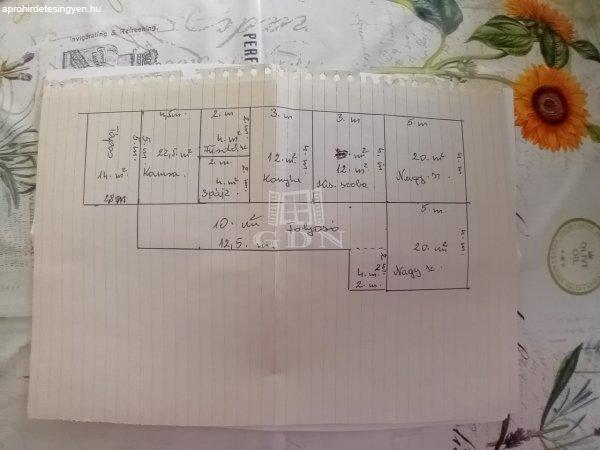 aprohirdetesingyen.hu
Invigorating & Refreshing.
PERF
14. m²
4,5 m.
5. m
5. m.
22,5. m²
Kamra
2. m
2. m.
4. m²
Fürdősz
2. m.
4. m²
Spájz
3. m
4. m
12. m²
Konyha
3. m
m²
12. m²
4. m
Kis szoba
5. m
20. m²
4. m
Nagy sz.
10. m²
folyosó
12,5. m.
GDN
5. m
20. m²
4. m
Nagy sz
4. m.
2. m.
OLIVE
OIL